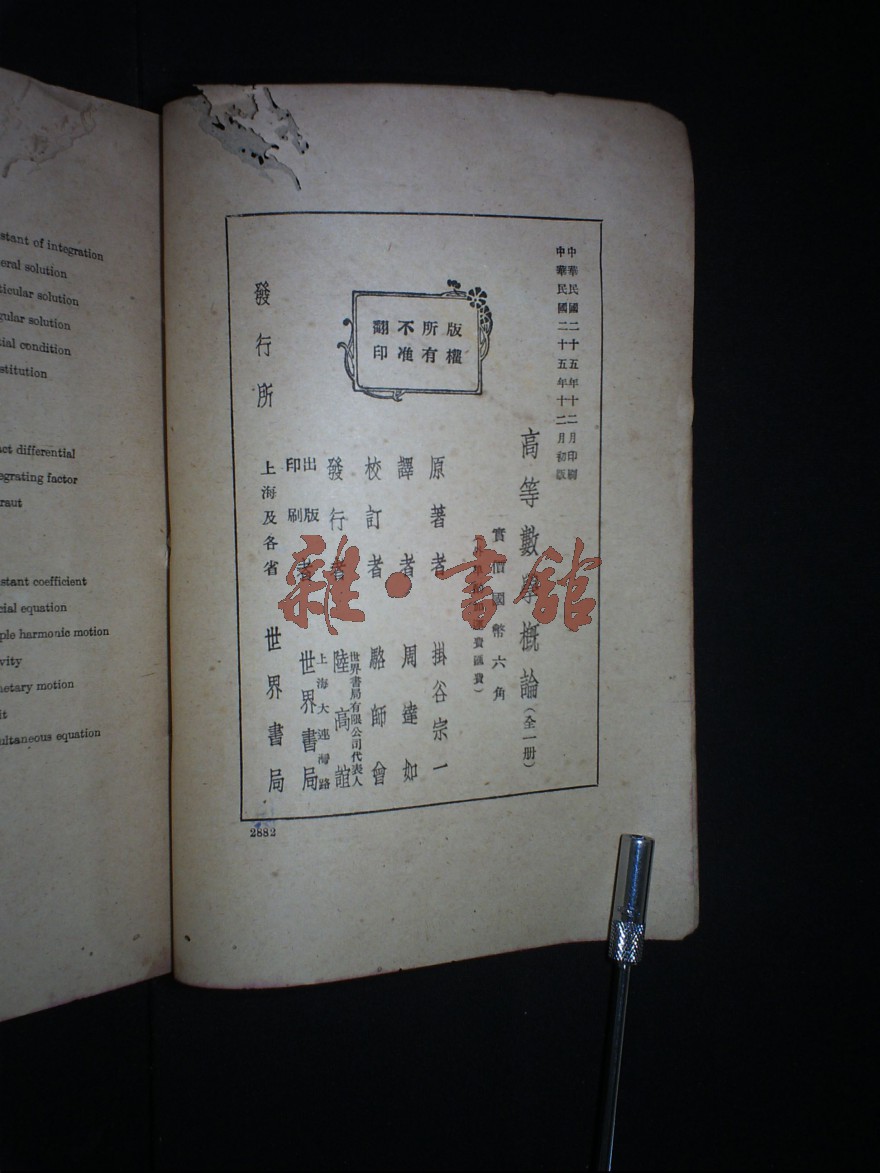 stant of integration
eral solution
ticular solution
gular solution
tial condition
stitution
act differential
egrating factor
raut
stant coefficient
cial equation
ple harmonic motion
vity
netary motion
it
ultaneous equation
中華民國二十五年十二月印刷
中華民國二十五年十二月初版
高等數學概論(全一册)
實價國幣六角
費匯費)
版權
所有
不准
翻印
原著者 掛谷宗一
譯者 周達如
校訂者 駱師曾
發行者 陸高誼
世界書局有限公司代表人
出版
印刷
者 世界書局
上海大連灣路
發行所 上海及各省 世界書局
2882
雜·書館